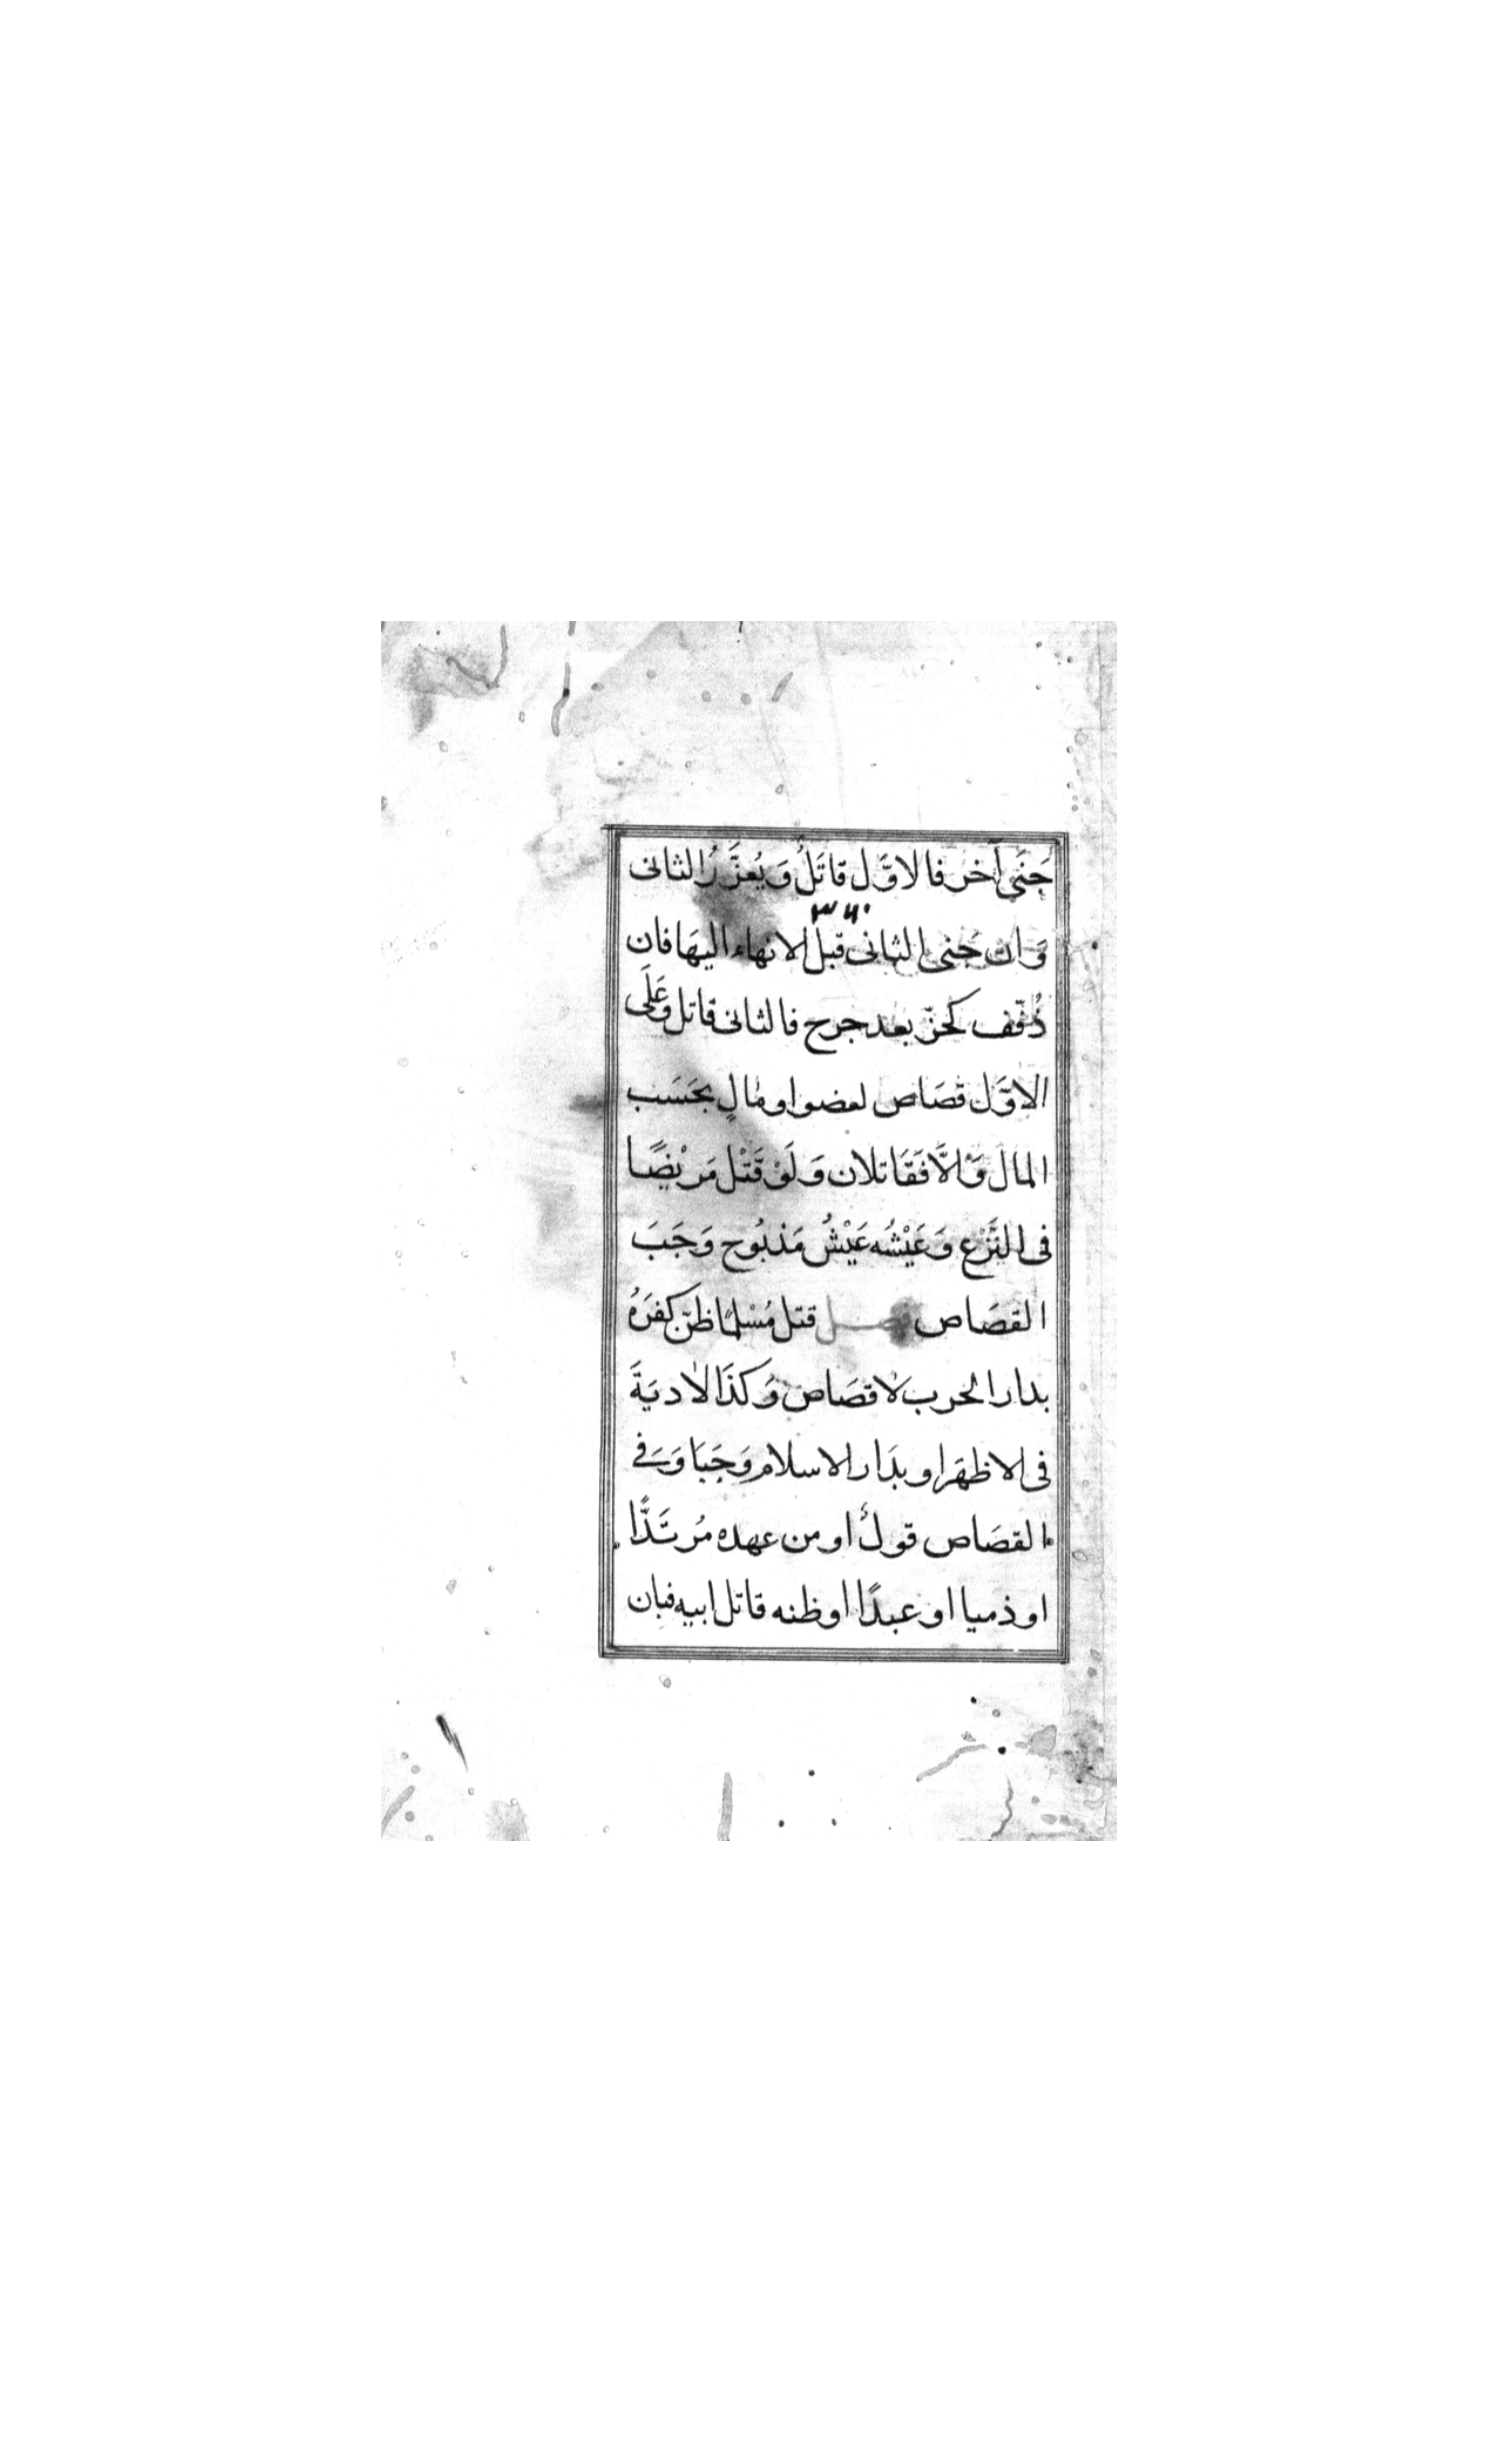 جَنَى آخر فالاوَّل قاتلُ وَيُعزَّرُ الثانى
٣٦٠
وَان جَنى الثانى قبل الانهاء اليهَا فان
ذُفّف كحزّ بعد جرح فالثانى قاتل وَعَلَى
الاوَّل قصَاص لعضو او مَالٍ بحَسَب
المال وَالاَّ فَقَاتلان وَلَوْ قَتْل مَرِيْضًا
فى النَّزْع وَعَيْشُه عَيْشُ مَذبُوح وَجَبَ
القصَاص فصل قتل مُسْلمًا ظنّ كفرَهُ
بدار الحرب لا قصَاص وَكذَا لا ديَةَ
فى الاظهَر او بدَار الاسلام وَجَبَا وَفے
القصَاص قولٌ او من عهده مُرتَدًّا
او ذميا او عبدًا او ظنه قاتل ابيه فبان